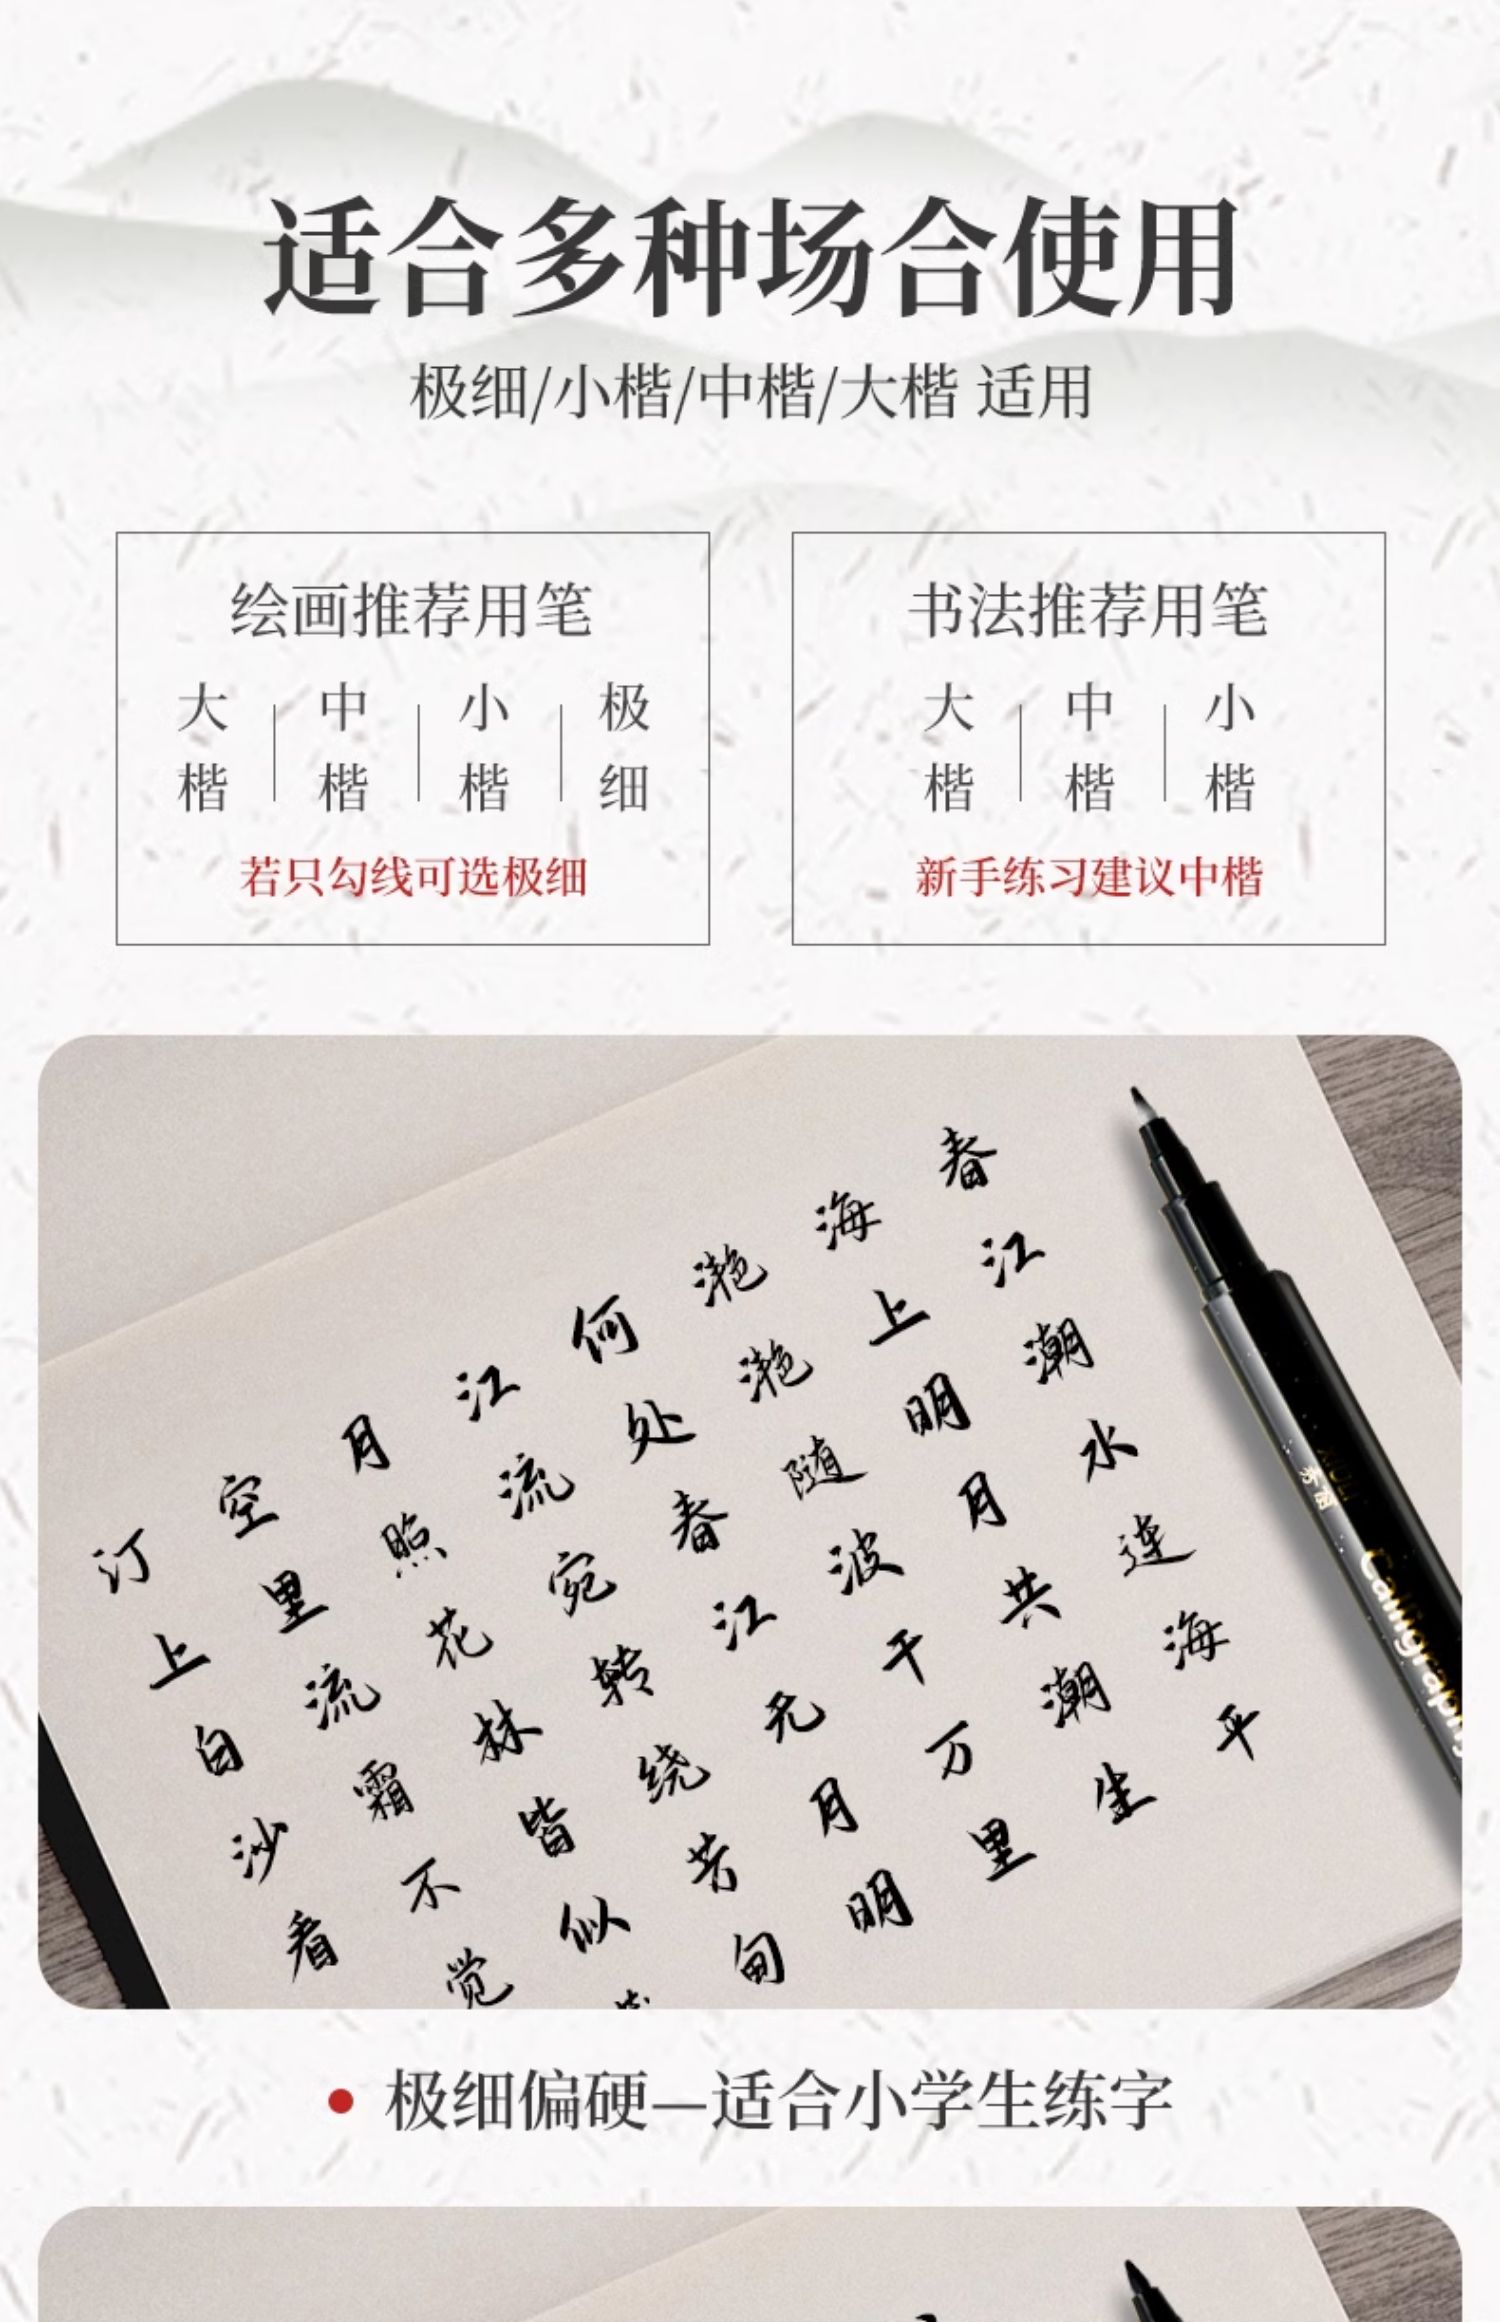 适合多种场合使用
极细/小楷/中楷/大楷 适用
绘画推荐用笔
大楷 中楷 小楷 极细
若只勾线可选极细
书法推荐用笔
大楷 中楷 小楷
新手练习建议中楷
春江潮水连海平
海上明月共潮生
滟滟随波千万里
何处春江无月明
江流宛转绕芳甸
月照花林皆似
空里流霜不觉
汀上白沙看
秀丽
Calligraphy
极细偏硬—适合小学生练字